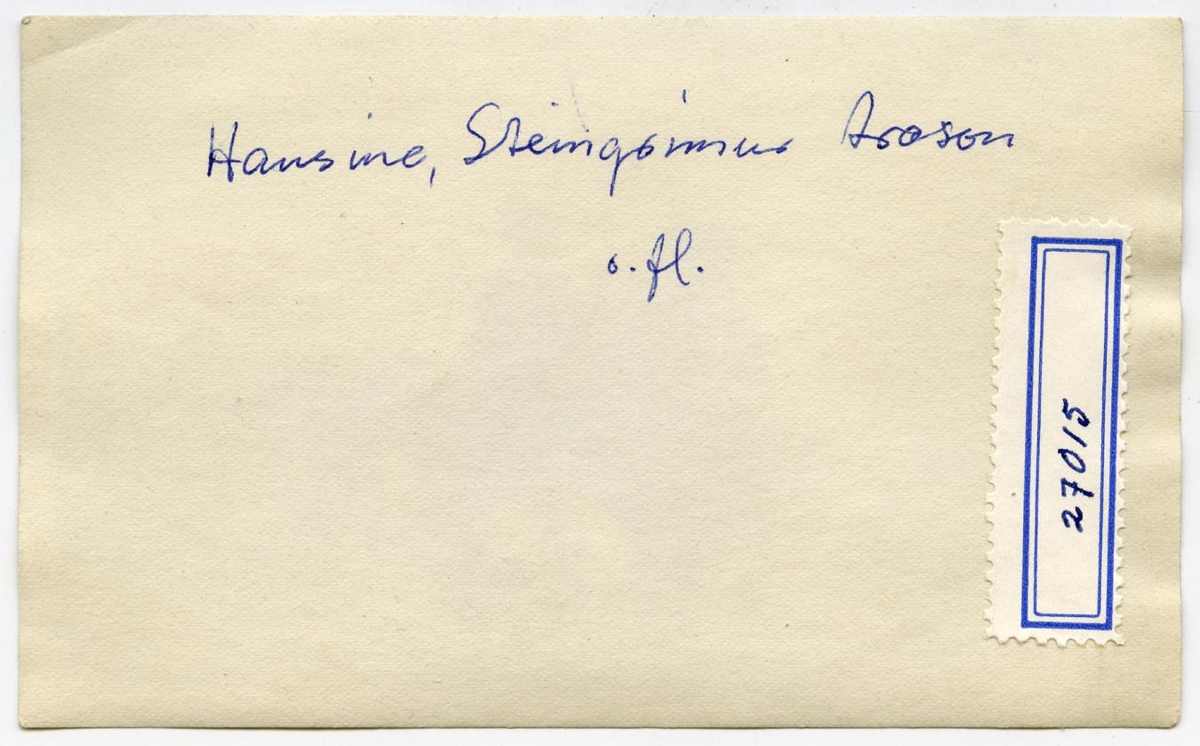 Hansine, Steingrímur Arason
o.fl.
27015